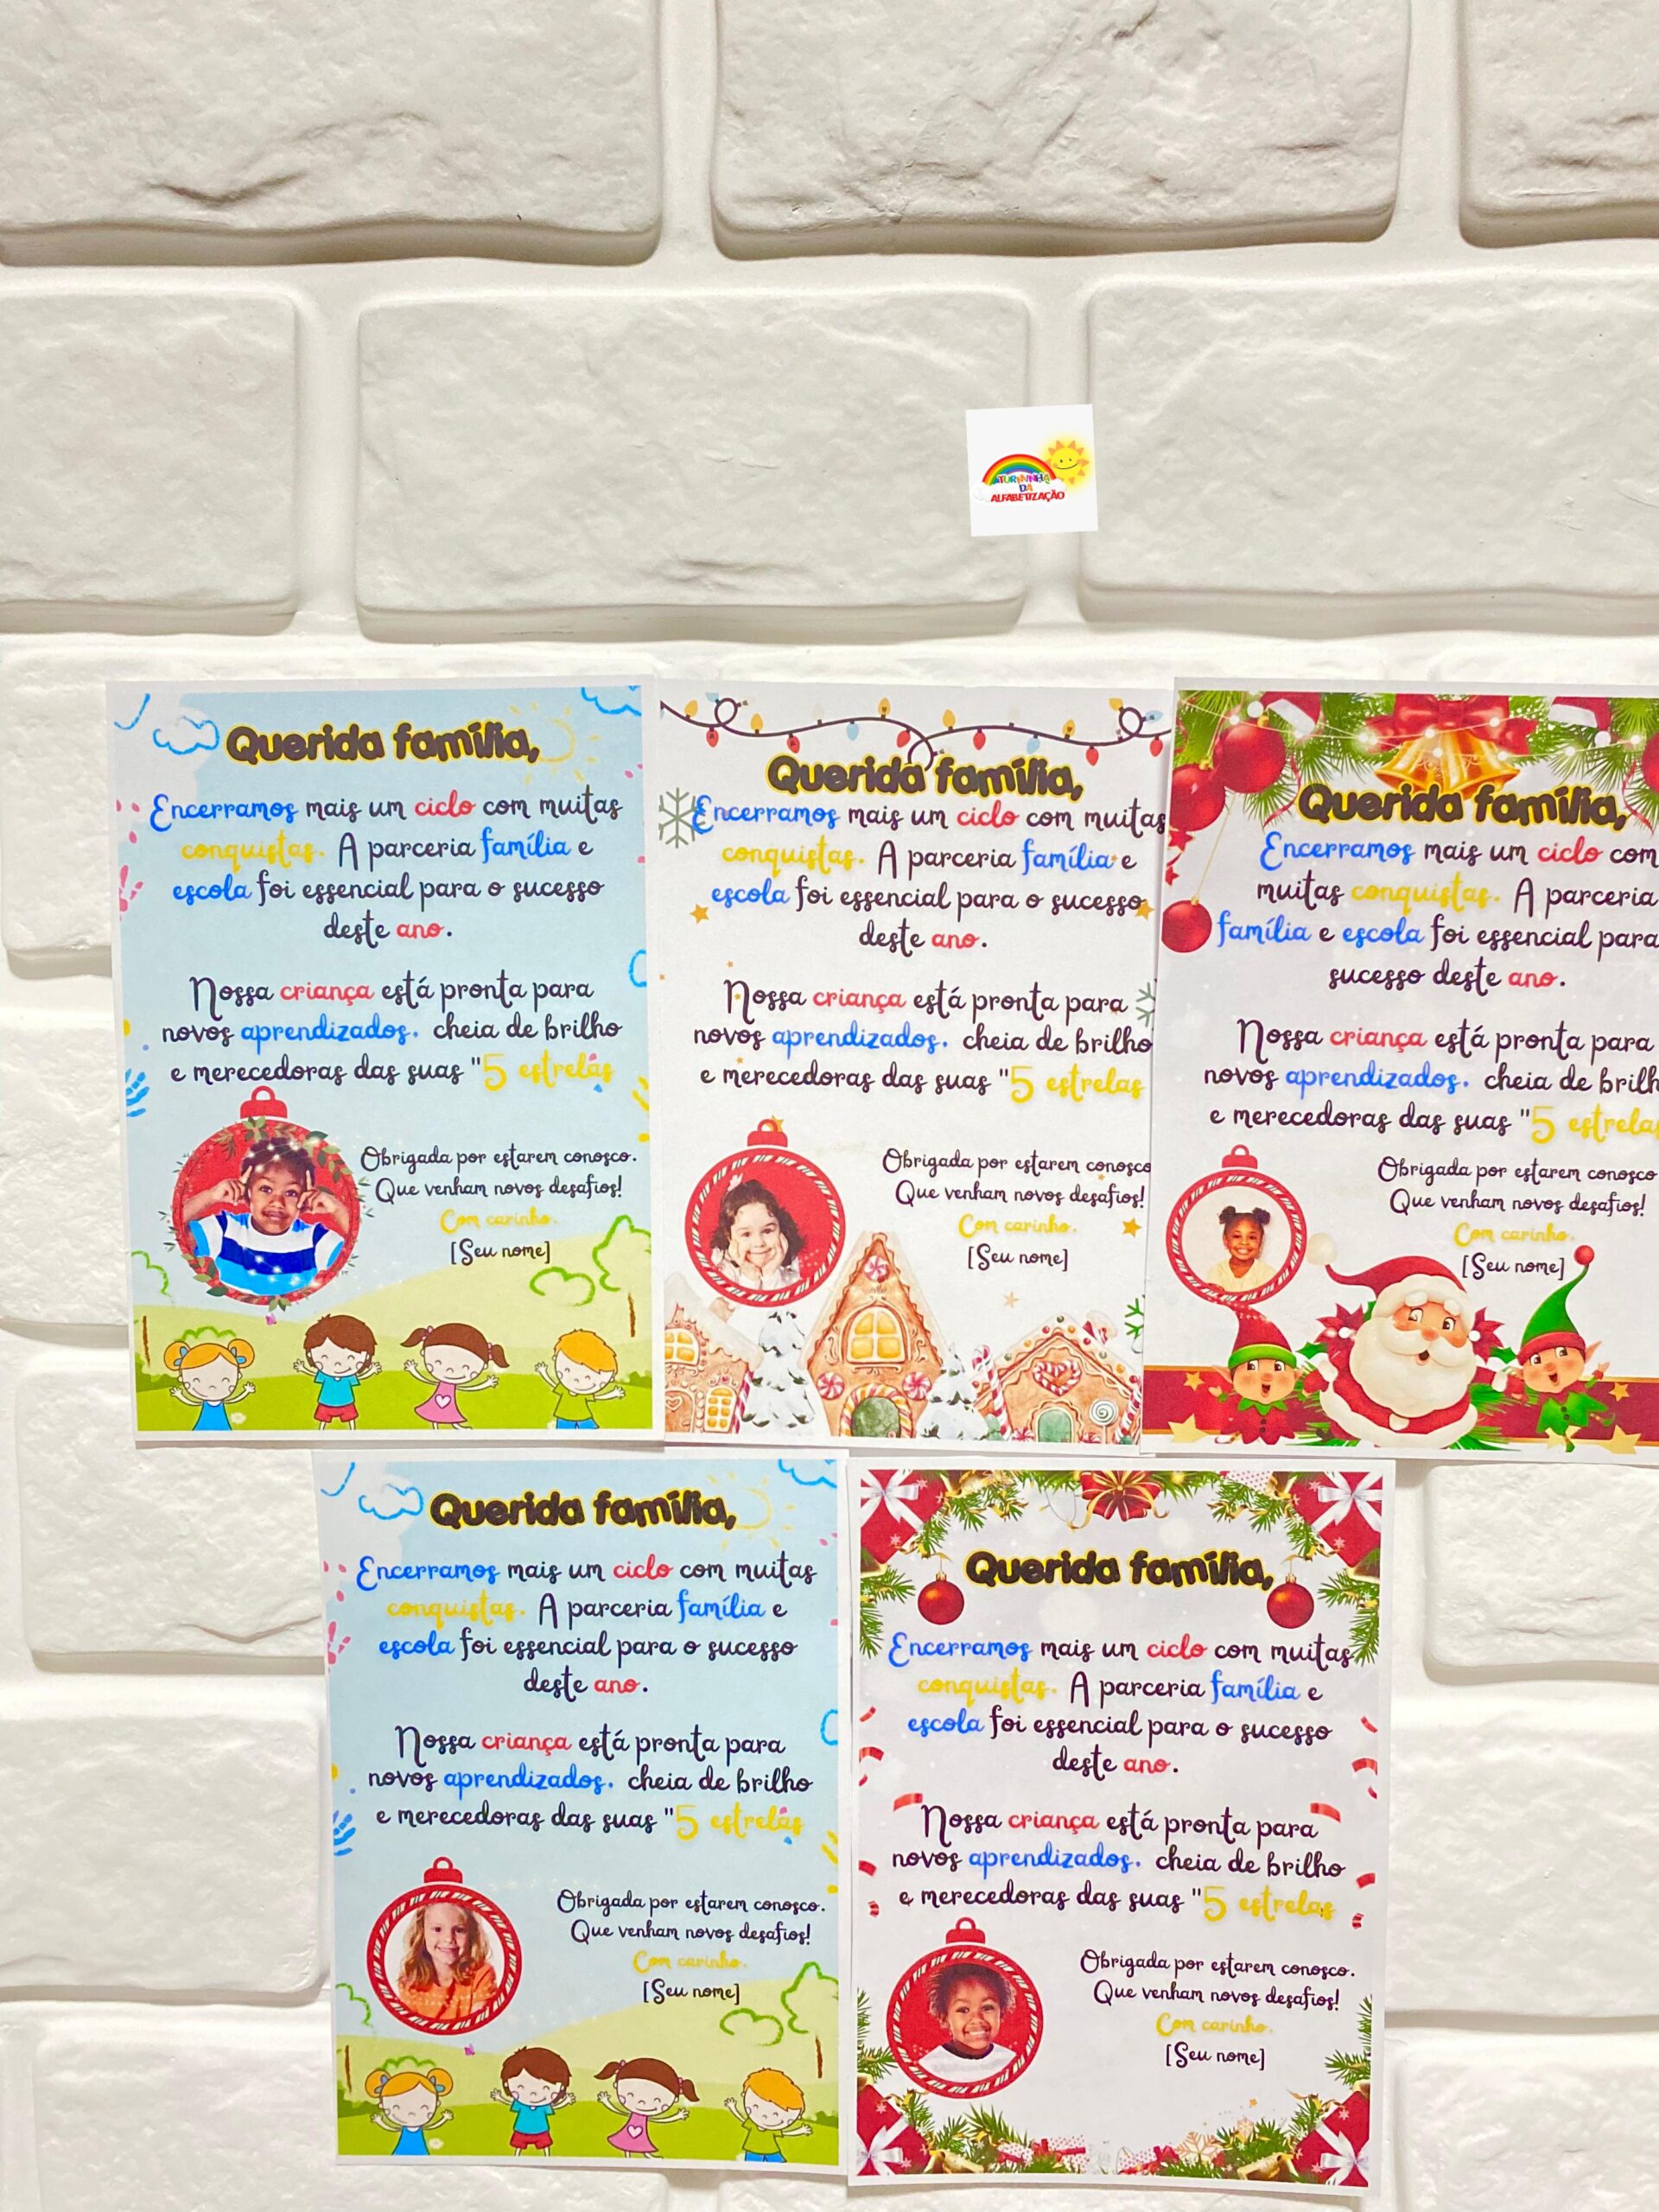 TURMINHA
DA
ALFABETIZAÇÃO
Querida família,
Encerramos mais um ciclo com muitas
conquistas. A parceria família e
escola foi essencial para o sucesso
deste ano.
Nossa criança está pronta para
novos aprendizados, cheia de brilho
e merecedoras das suas "5 estrelas
Obrigada por estarem conosco.
Que venham novos desafios!
Com carinho,
[Seu nome]
Querida família,
Encerramos mais um ciclo com muitas
conquistas. A parceria família e
escola foi essencial para o sucesso
deste ano.
Nossa criança está pronta para
novos aprendizados, cheia de brilho
e merecedoras das suas "5 estrelas
Obrigada por estarem conosco
Que venham novos desafios!
Com carinho,
[Seu nome]
Querida família,
Encerramos mais um ciclo com
muitas conquistas. A parceria
família e escola foi essencial para
sucesso deste ano.
Nossa criança está pronta para
novos aprendizados, cheia de brilh
e merecedoras das suas "5 estrelas
Obrigada por estarem conosco
Que venham novos desafios!
Com carinho,
[Seu nome]
Querida família,
Encerramos mais um ciclo com muitas
conquistas. A parceria família e
escola foi essencial para o sucesso
deste ano.
Nossa criança está pronta para
novos aprendizados, cheia de brilho
e merecedoras das suas "5 estrelas
Obrigada por estarem conosco.
Que venham novos desafios!
Com carinho,
[Seu nome]
Querida família,
Encerramos mais um ciclo com muitas
conquistas. A parceria família e
escola foi essencial para o sucesso
deste ano.
Nossa criança está pronta para
novos aprendizados, cheia de brilho
e merecedoras das suas "5 estrelas
Obrigada por estarem conosco.
Que venham novos desafios!
Com carinho,
[Seu nome]